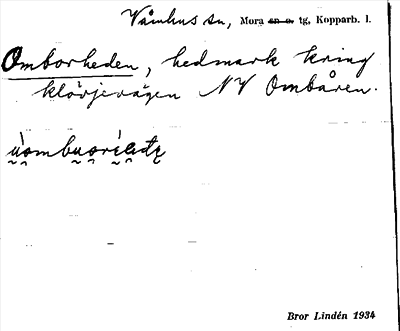 Våmhus sn, Mora sn o. tg, Kopparb. l.
Omborheden, hedmark kring
klövjevägen NV Ombåren.
Bror Lindén 1934